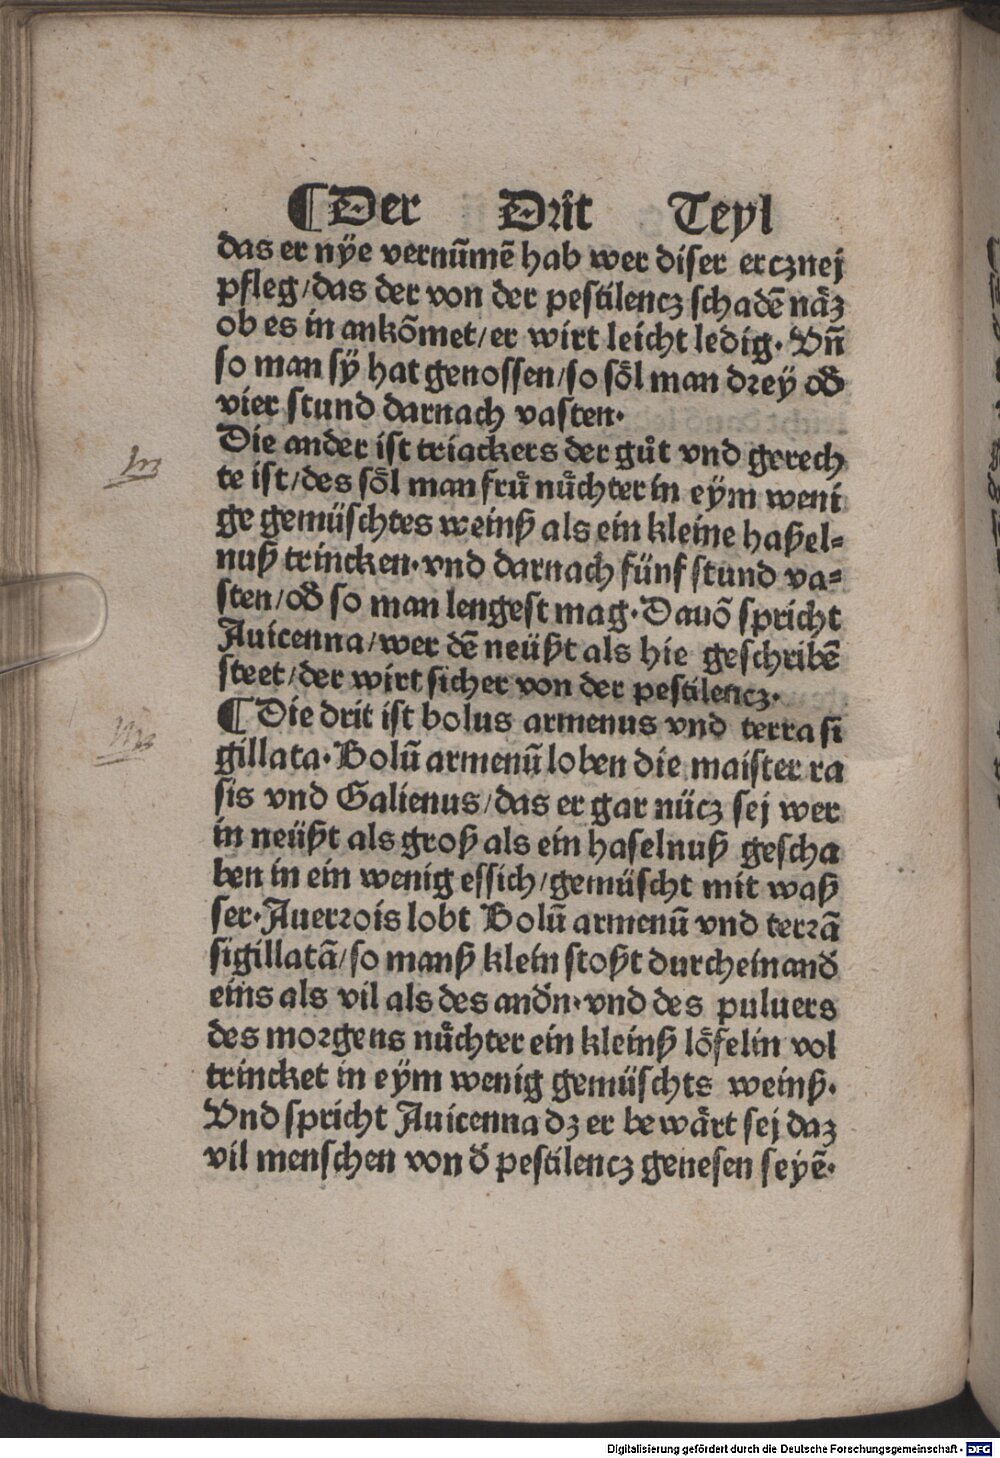 ¶Der Drit Teyl
das er nÿe vernūmē hab wer diser ercznej
pfleg/das der von der pestilencz schadē näz
ob es in ankōmet/er wirt leicht ledig. Vn̄
so man sÿ hat genossen/so söl man drey od̄
vier stund darnach vasten.
Die ander ist triackers der gůt vnd gerech
te ist/des söl man frů nůchter in eÿm weni
ge gemüschtes weinß als ein kleine haßel=
nuß trincken. vnd darnach fünf stund va=
sten/od̄ so man lengest mag. Dauō spricht
Auicenna/wer dē neüßt als hie geschribē
steet/der wirt sicher von der pestilencz.
¶Die drit ist bolus armenus vnd terra si
gillata. Bolū armenū loben die maister ra
sis vnd Galienus/das er gar nücz sej wer
in neüßt als groß als ein haselnuß gescha
ben in ein wenig essich/gemüscht mit waß
ser. Auerrois lobt Bolū armenū vnd terrā
sigillatā/so manß klein stoßt durcheinand̄
eins als vil als des and̄n. vnd des puluers
des morgens nůchter ein kleinß löfelin vol
trincket in eÿm wenig gemüschts weinß.
Vnd spricht Auicenna dz er bewärt sej daz
vil menschen von d̄ pestilencz genesen seyē.
Digitalisierung gefördert durch die Deutsche Forschungsgemeinschaft - DFG